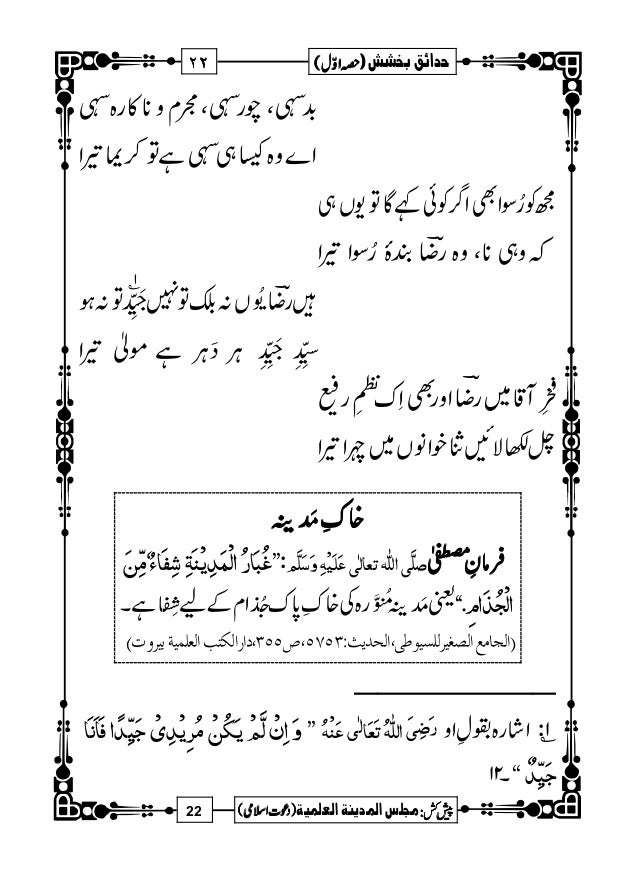 حدائق بخشش (حصہ اوّل)
۲۲
بد سہی، چور سہی، مجرم و ناکارہ سہی
اے وہ کیسا ہی سہی ہے تو کریما تیرا
مجھ کو رُسوا بھی اگر کوئی کہے گا تو یوں ہی
کہ وہی نا، وہ رضؔا بندۂ رُسوا تیرا
ہیں رضؔا یُوں نہ بلک تو نہیں جَیِّد۱؎ تو نہ ہو
سیِّدِ جَیِّدِ ہر دَہر ہے مولیٰ تیرا
فخرِ آقا میں رضؔا اور بھی اِک نظمِ رفیع
چل لکھا لائیں ثنا خوانوں میں چہرا تیرا
خاکِ مَدینہ
فرمانِ مصطفٰی صلَّی اللہ تعالٰی عَلَیْہِ وَسَلَّم: ”غُبَارُ الْمَدِیْنَۃِ شِفَاءٌ مِّنَ
الْجُذَامِ.“ یعنی مَدینہ مُنوَّرہ کی خاکِ پاک جُذام کے لیے شِفا ہے۔
(الجامع الصغیر للسیوطی،الحدیث:۵۷۵۳،ص۳۵۵،دارالکتب العلمیة بیروت)
۱؎: اشارہ بقولِ او رَضِیَ اللّٰہُ تَعَالٰی عَنْہُ ” وَاِنْ لَّمْ یَکُنْ مُرِیْدِیْ جَیِّدًا فَاَنَا
جَیِّدٌ “۔۱۲
پیش کش: مجلس المدینة العلمیة (دعوتِ اسلامی)
22